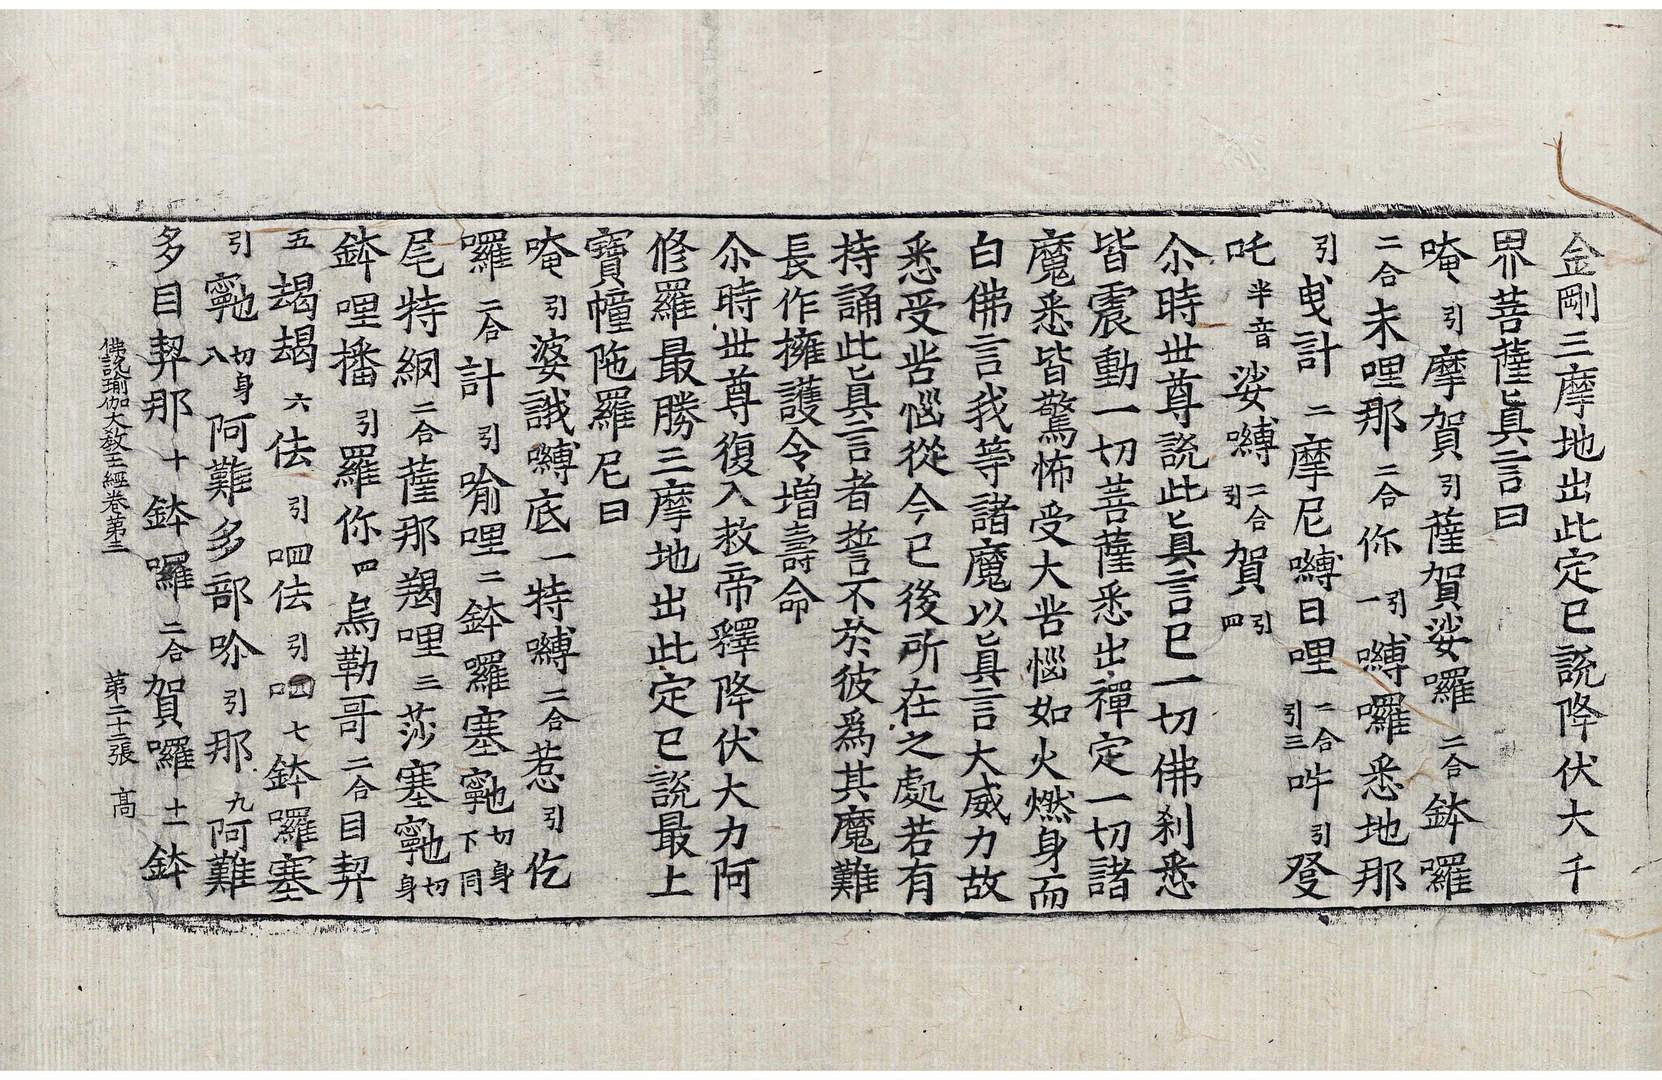 金剛三摩地出此定已說降伏大千
界菩薩眞言曰
唵引摩賀引薩賀娑囉二合鉢囉
二合未哩那二合你引一嚩囉悉地那
引曳計二摩尼嚩日哩二合引三吽引發
吒半音娑嚩二合引賀引四
尒時世尊說此眞言已一切佛刹悉
皆震動一切菩薩悉出禪定一切諸
魔悉皆驚怖受大苦惱如火燃身而
白佛言我等諸魔以眞言大威力故
悉受苦惱從今已後所在之處若有
持誦此眞言者誓不於彼爲其魔難
長作擁護令增壽命
尒時世尊復入救帝釋降伏大力阿
修羅最勝三摩地出此定已說最上
寶幢陁羅尼曰
唵引婆誐嚩底一特嚩二合惹引仡
囉二合計引喻哩二鉢囉塞𩕳切身下同
尾特網二合薩那羯哩三莎塞𩕳切身
鉢哩播引羅你四烏勒哥二合目契
五朅朅六佉引呬佉引呬七鉢囉塞
引𩕳切身八阿難多部吤引那九阿難
多目契那十鉢囉二合賀囉十一鉢
佛說瑜伽大敎王經卷第三 第二十二張 髙